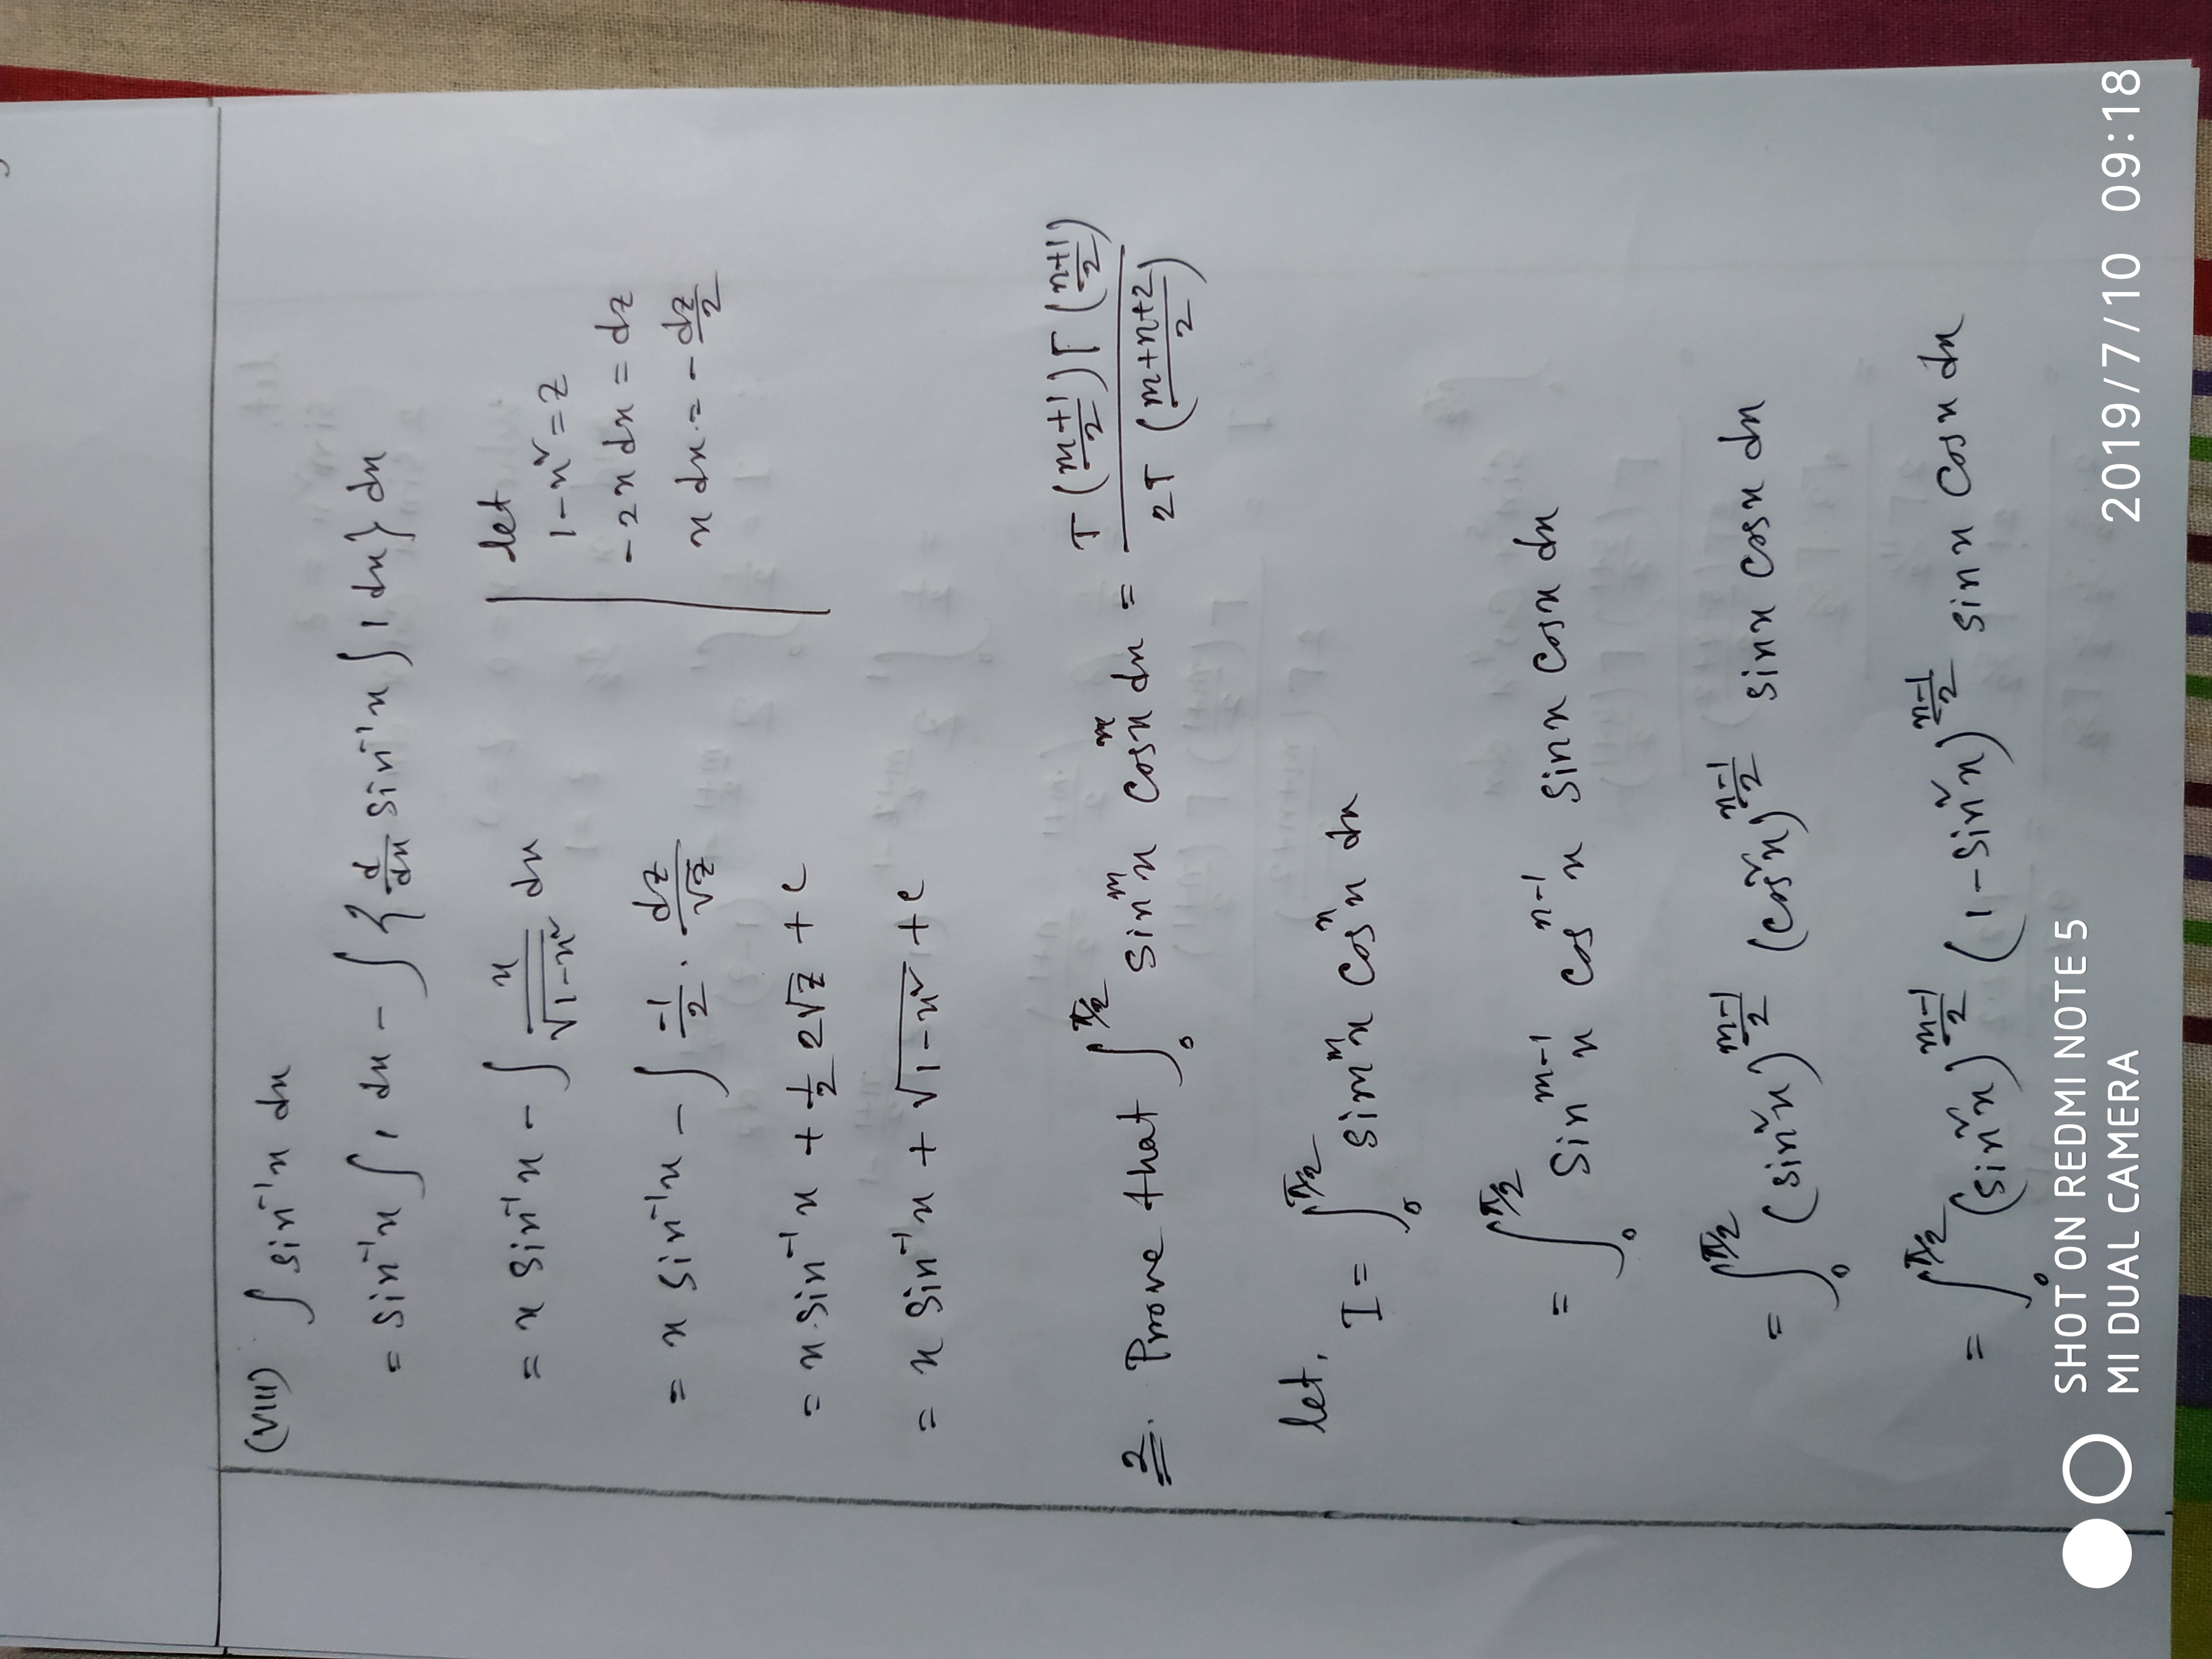 (VIII) ∫ sin⁻¹x dx
= sin⁻¹x ∫ 1 dx − ∫ { d/dx sin⁻¹x ∫ 1 dx } dx
= x sin⁻¹x − ∫ x/√(1−x²) dx
let
1−x² = z
−2x dx = dz
x dx = −dz/2
= x sin⁻¹x − ∫ −1/2 . dz/√z
= x sin⁻¹x + 1/2 2√z + c
= x sin⁻¹x + √(1−x²) + c
2. Prove that ∫₀^(π/2) sin^m x cos^n x dx = Γ((m+1)/2) Γ((n+1)/2) / 2Γ((m+n+2)/2)
let,
I = ∫₀^(π/2) sim^m x cos^n x dx
= ∫₀^(π/2) Sin^(m−1) x cos^(n−1) x sinx cosx dx
= ∫₀^(π/2) (sin²x)^((m−1)/2) (cos²x)^((n−1)/2) sinx cosx dx
= ∫₀^(π/2) (sin²x)^((m−1)/2) (1−sin²x)^((n−1)/2) sinx cosx dx
SHOT ON REDMI NOTE 5
MI DUAL CAMERA
2019/7/10 09:18